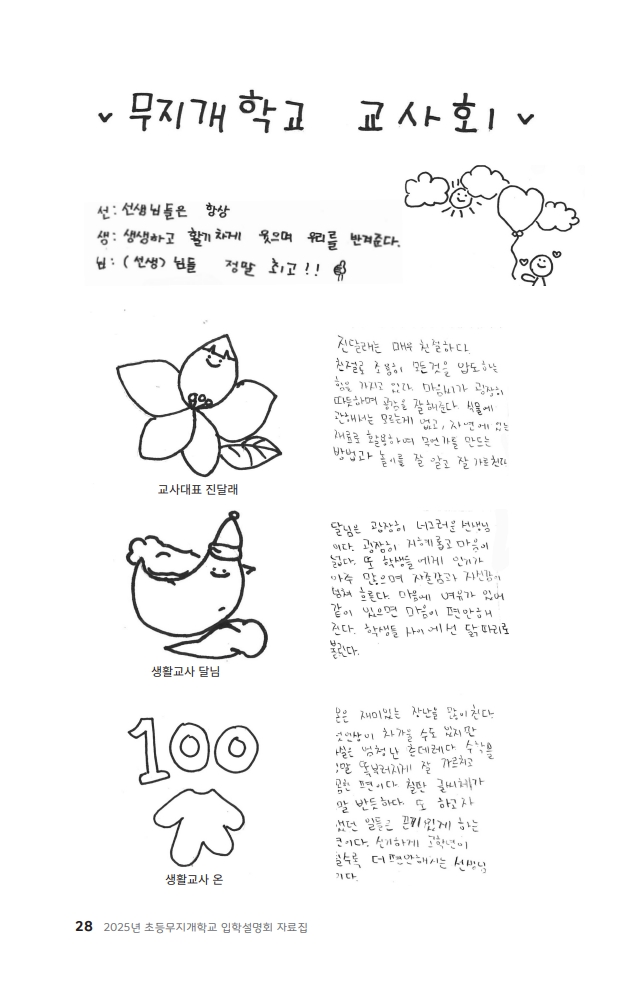 무지개학교 교사회
선: 선생님들은 항상
생: 생생하고 활기차게 웃으며 우리를 반겨준다.
님: (선생)님들 정말 최고!!
진달래는 매우 친절하다.
친절로 조용히 모든것을 압도하는
힘을 가지고 있다. 마음씨가 굉장히
따뜻하며 공감을 잘해준다. 식물에
관해서는 모르는게 없고, 자연에 있는
재료로 활용하여 목련가틀 만드는
방법과 놀이를 잘 알고 잘 가르친다
교사대표 진달래
달님은 굉장히 너그러운 선생님
이다. 굉장히 지혜롭고 마음이
넓다. 또 학생들에게 인기가
아주 많으며 자존감과 자신감이
넘쳐 흐른다. 마음에 여유가 있어
같이 있으면 마음이 편안해
진다. 학생들 사이에선 닭다리로
불린다.
생활교사 달님
100
온은 재미있는 장난을 많이 친다.
첫인상이 차가울 수도 있지만
사실은 엄청난 츤데레다. 수학을
정말 똑부러지게 잘 가르치고
꼼꼼한 편이다. 칠판 글씨체가
정말 반듯하다. 또 하고자
했던 일들은 끈기있게 하는
편이다. 신기하게 고학년이
될수록 더 편안해지는 선생님
이다.
생활교사 온
28 2025년 초등무지개학교 입학설명회 자료집